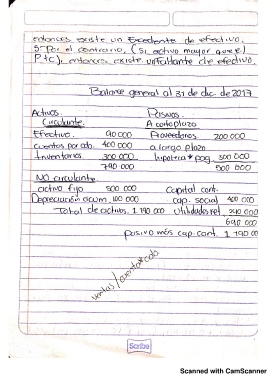 entonces existe un Excedente de efectivo.
5- Por el contrario, (si activo mayor que
P+C), entonces existe un faltante de efectivo.
Balance general al 31 de dic de 2017
Activos Pasivos
Circulante. A corto plazo
Efectivo. 90 000 Proveedores 200 000
cuentas por cob. 400 000 a largo plazo
Inventarios 300 000 hipoteca * pag. 300 000
790 000 500 000
NO circulante
activo fijo 500 000 Capital cont.
Depreciación acum. 100 000 cap. social 400 000
Total de activos. 1 190 000 utilidades ret. 290 000
690 000
pasivo más cap. cont. 1 190 00
ventas / cuenta * cob
Scribe
Scanned with CamScanner